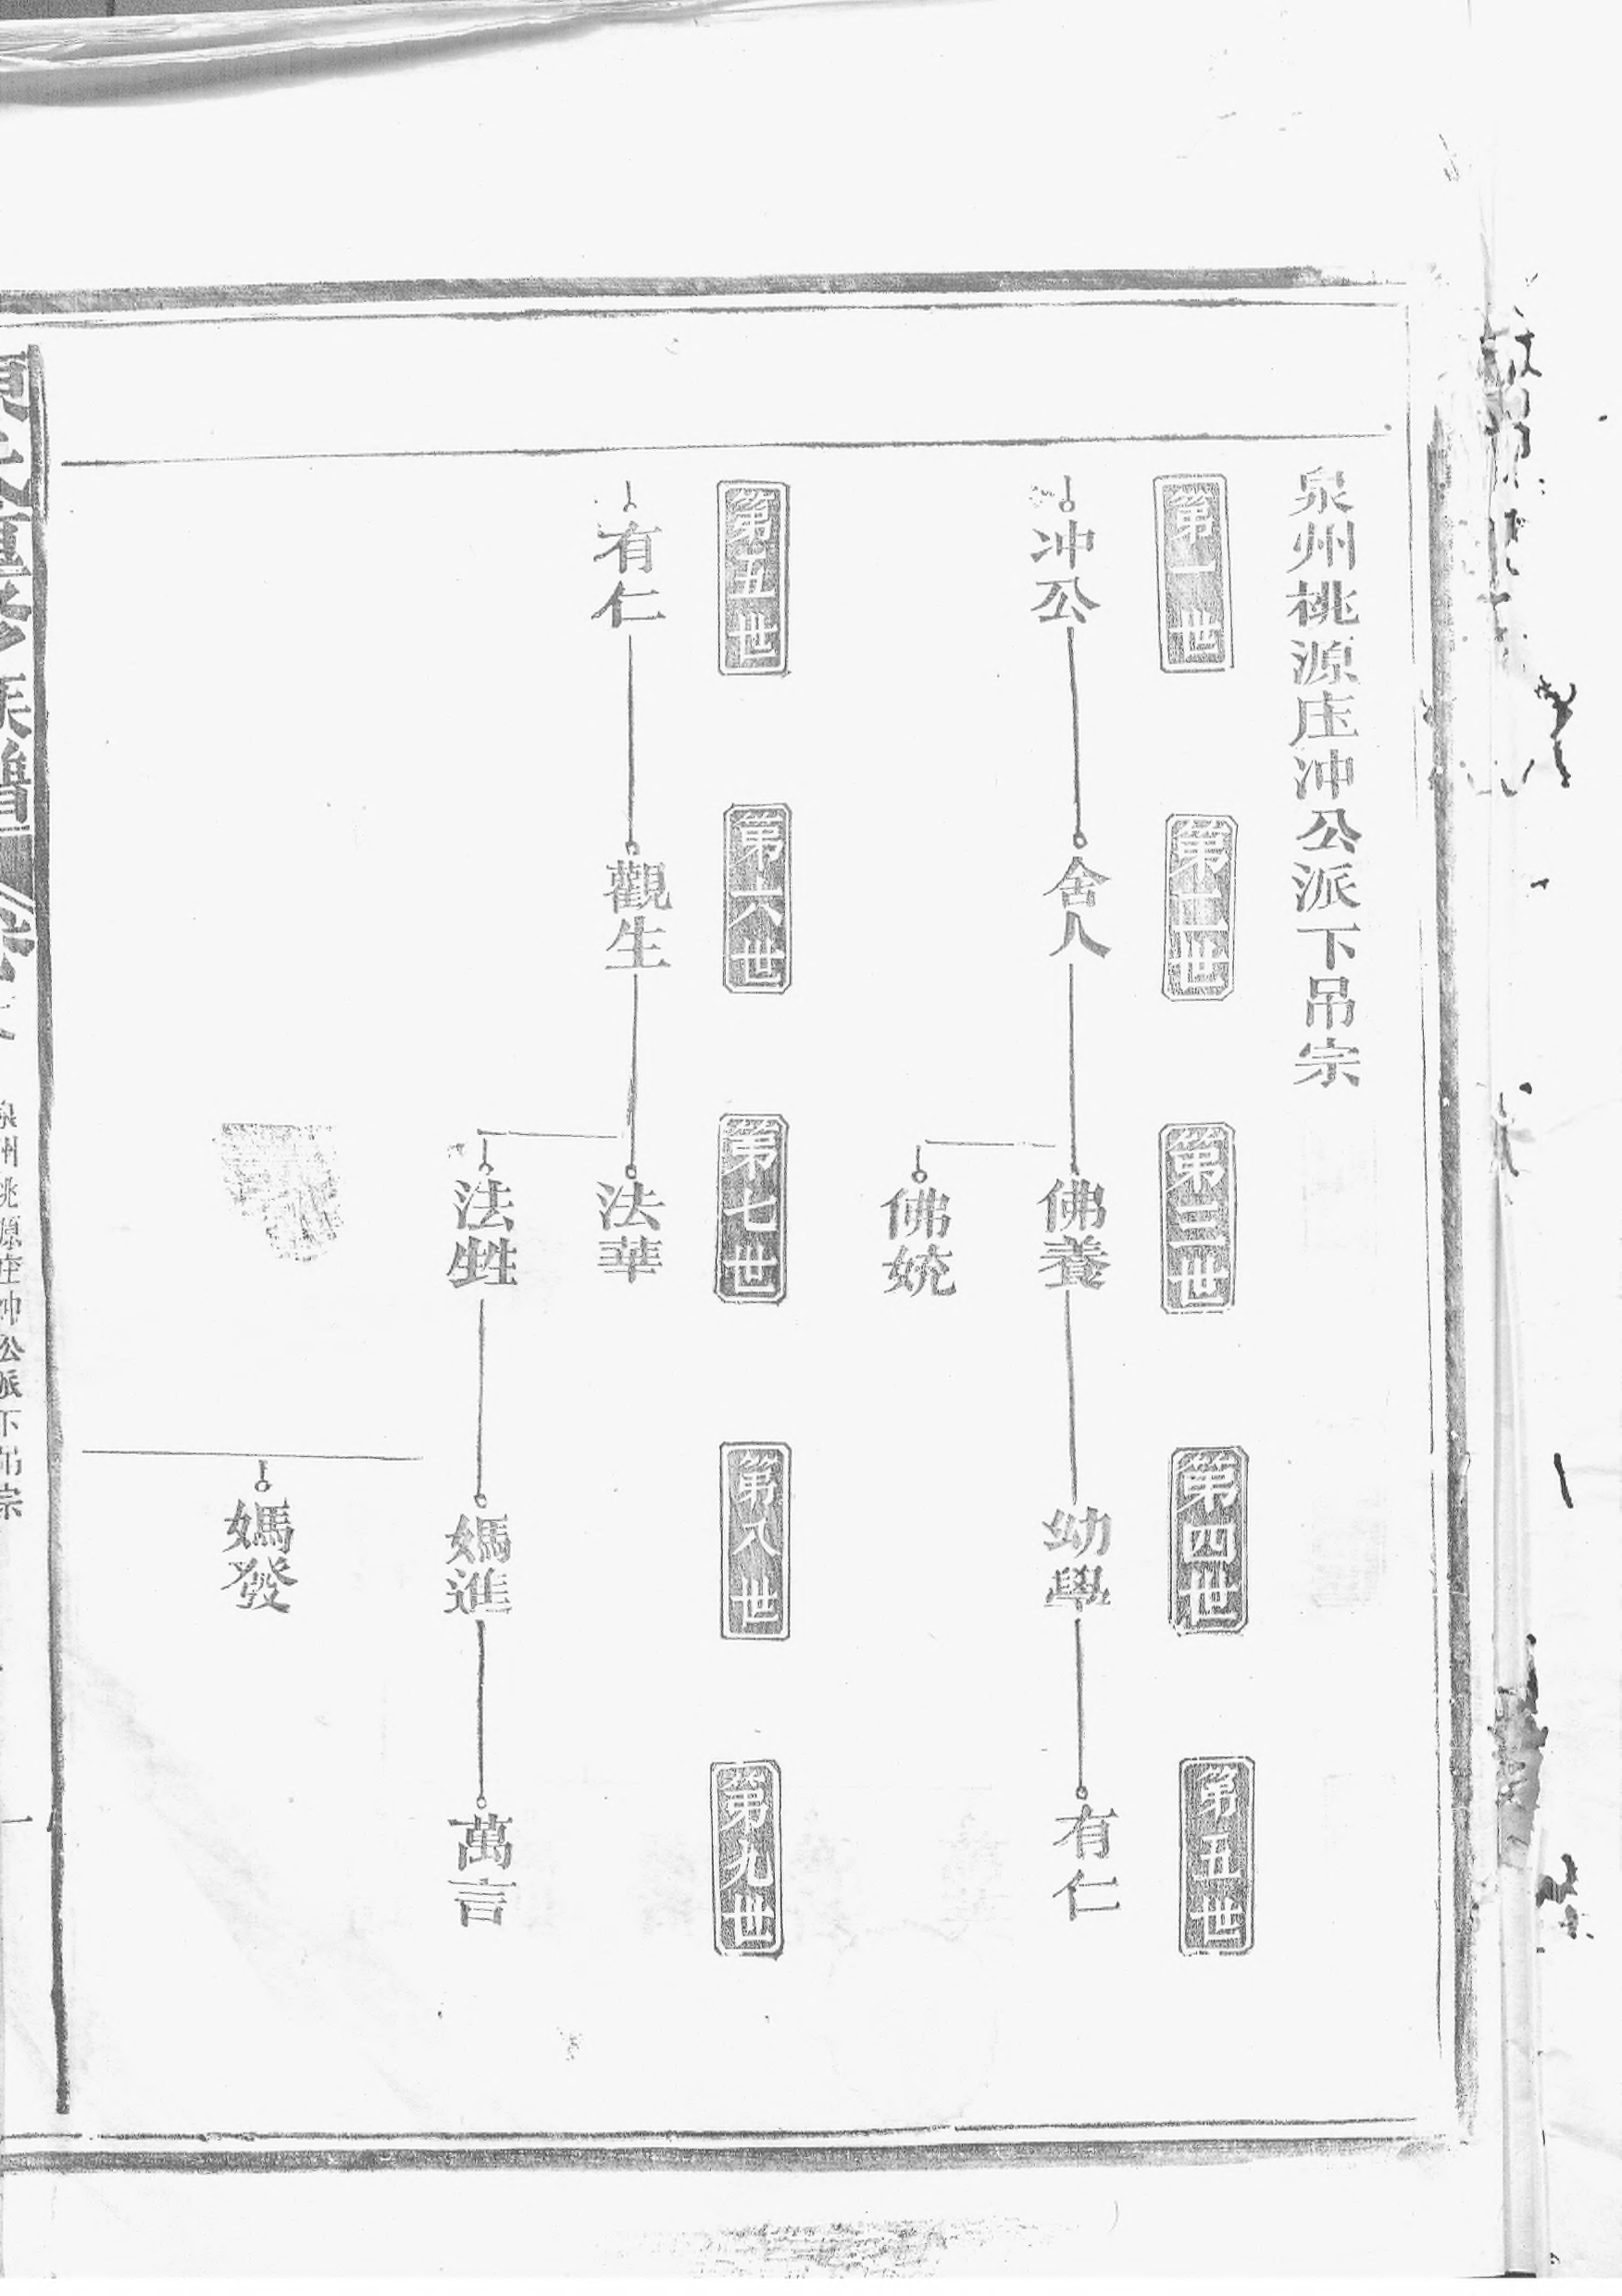 泉州桃源庄冲公派下吊宗
第一世
第二世
第三世
第四世
第五世
冲公
舍人
佛養
幼學
有仁
佛㛩
第五世
第六世
第七世
第八世
第九世
有仁
觀生
法華
法甡
媽進
萬言
媽發
重修族譜
泉州桃源庄冲公派下吊宗
一